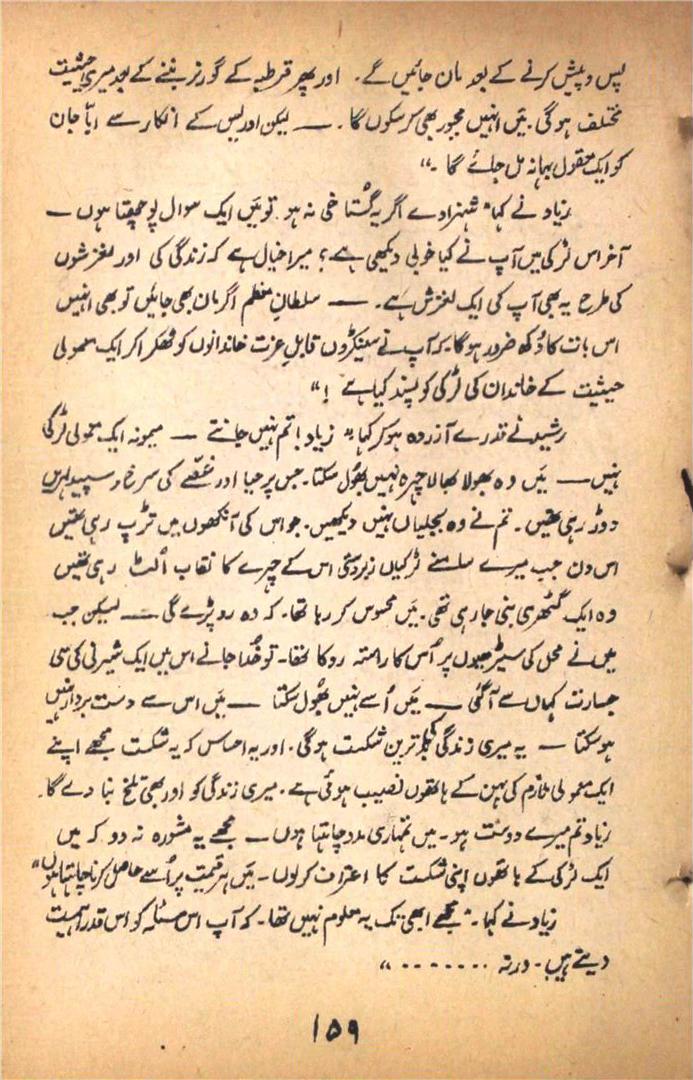 پس وپیش کرنے کے بعد مان جائیں گے۔ اور پھر قرطبہ کے گورنر بننے کے بعد میری حیثیت
مختلف ہوگی۔ میں انہیں مجبور بھی کر سکوں گا۔ — لیکن ادریس کے انکار سے اباجان
کو ایک معقول بہانہ مل جائے گا۔"
زیاد نے کہا "شہزادے اگر یہ گستاخی نہ ہو تو میں ایک سوال پوچھتا ہوں —
آخر اس لڑکی میں آپ نے کیا خوبی دیکھی ہے؟ میرا خیال ہے کہ زندگی کی اور لغزشوں
کی طرح یہ بھی آپ کی ایک لغزش ہے۔ — سلطانِ معظم اگر مان بھی جائیں تو بھی انہیں
اس بات کا دُکھ ضرور ہوگا۔ کہ آپ نے سینکڑوں قابلِ عزت خاندانوں کو ٹھکرا کر ایک معمولی
حیثیت کے خاندان کی لڑکی کو پسند کیا ہے !"
رشید نے قدرے آزردہ ہو کر کہا "زیاد! تم نہیں جانتے — میمونہ ایک معمولی لڑکی
نہیں — میں وہ بھولا بھالا چہرہ نہیں بھُول سکتا۔ جس پر حیا اور غصّے کی سرخ و سپید لہریں
دوڑ رہی تھیں۔ تم نے وہ بجلیاں نہیں دیکھیں۔ جو اس کی آنکھوں میں تڑپ رہی تھیں
اس دن جب میرے سامنے لڑکیاں زبردستی اس کے چہرے کا نقاب اُلٹ رہی تھیں
وہ ایک گٹھڑی بنی جارہی تھی۔ میں محسوس کر رہا تھا۔ کہ وہ رو پڑے گی — لیکن جب
میں نے محل کی سیڑھیوں پر اُس کا راستہ روکا تھا۔ تو خُدا جانے اس میں ایک شیرنی کی سی
جسارت کہاں سے آگئی — میں اُسے نہیں بھُول سکتا — میں اس سے دست بردار نہیں
ہو سکتا — یہ میری زندگی کی بدترین شکست ہوگی۔ اور یہ احساس کہ یہ شکست مجھے اپنے
ایک معمولی ملازم کی بہن کے ہاتھوں نصیب ہوئی ہے۔ میری زندگی کو اور بھی تلخ بنا دے گا۔
زیاد تم میرے دوست ہو۔ میں تمہاری مدد چاہتا ہوں — مجھے یہ مشورہ نہ دو کہ میں
ایک لڑکی کے ہاتھوں اپنی شکست کا اعتراف کر لوں۔ میں ہر قیمت پر اُسے حاصل کرنا چاہتا ہوں"
زیاد نے کہا۔ "مجھے ابھی تک یہ معلوم نہیں تھا۔ کہ آپ اس مسئلہ کو اس قدر اہمیت
دیتے ہیں۔ ورنہ ......."
۱۵۹